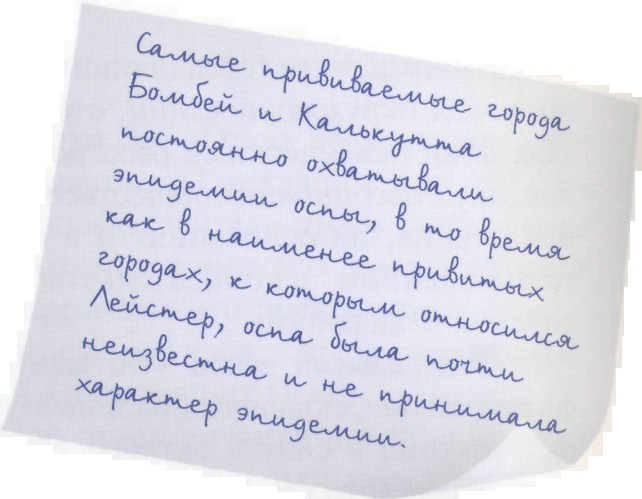 Самые прививаемые города
Бомбей и Калькутта
постоянно охватывали
эпидемии оспы, в то время
как в наименее привитых
городах, к которым относился
Лейстер, оспа была почти
неизвестна и не принимала
характер эпидемии.